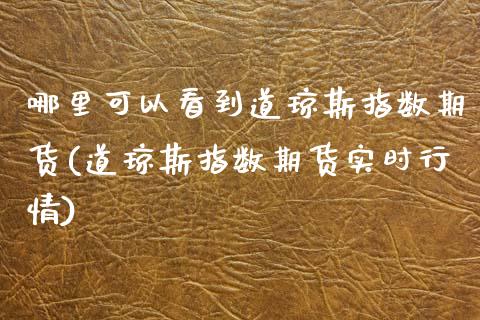 哪里可以看到道琼斯指数期
货(道琼斯指数期货实时行
情)